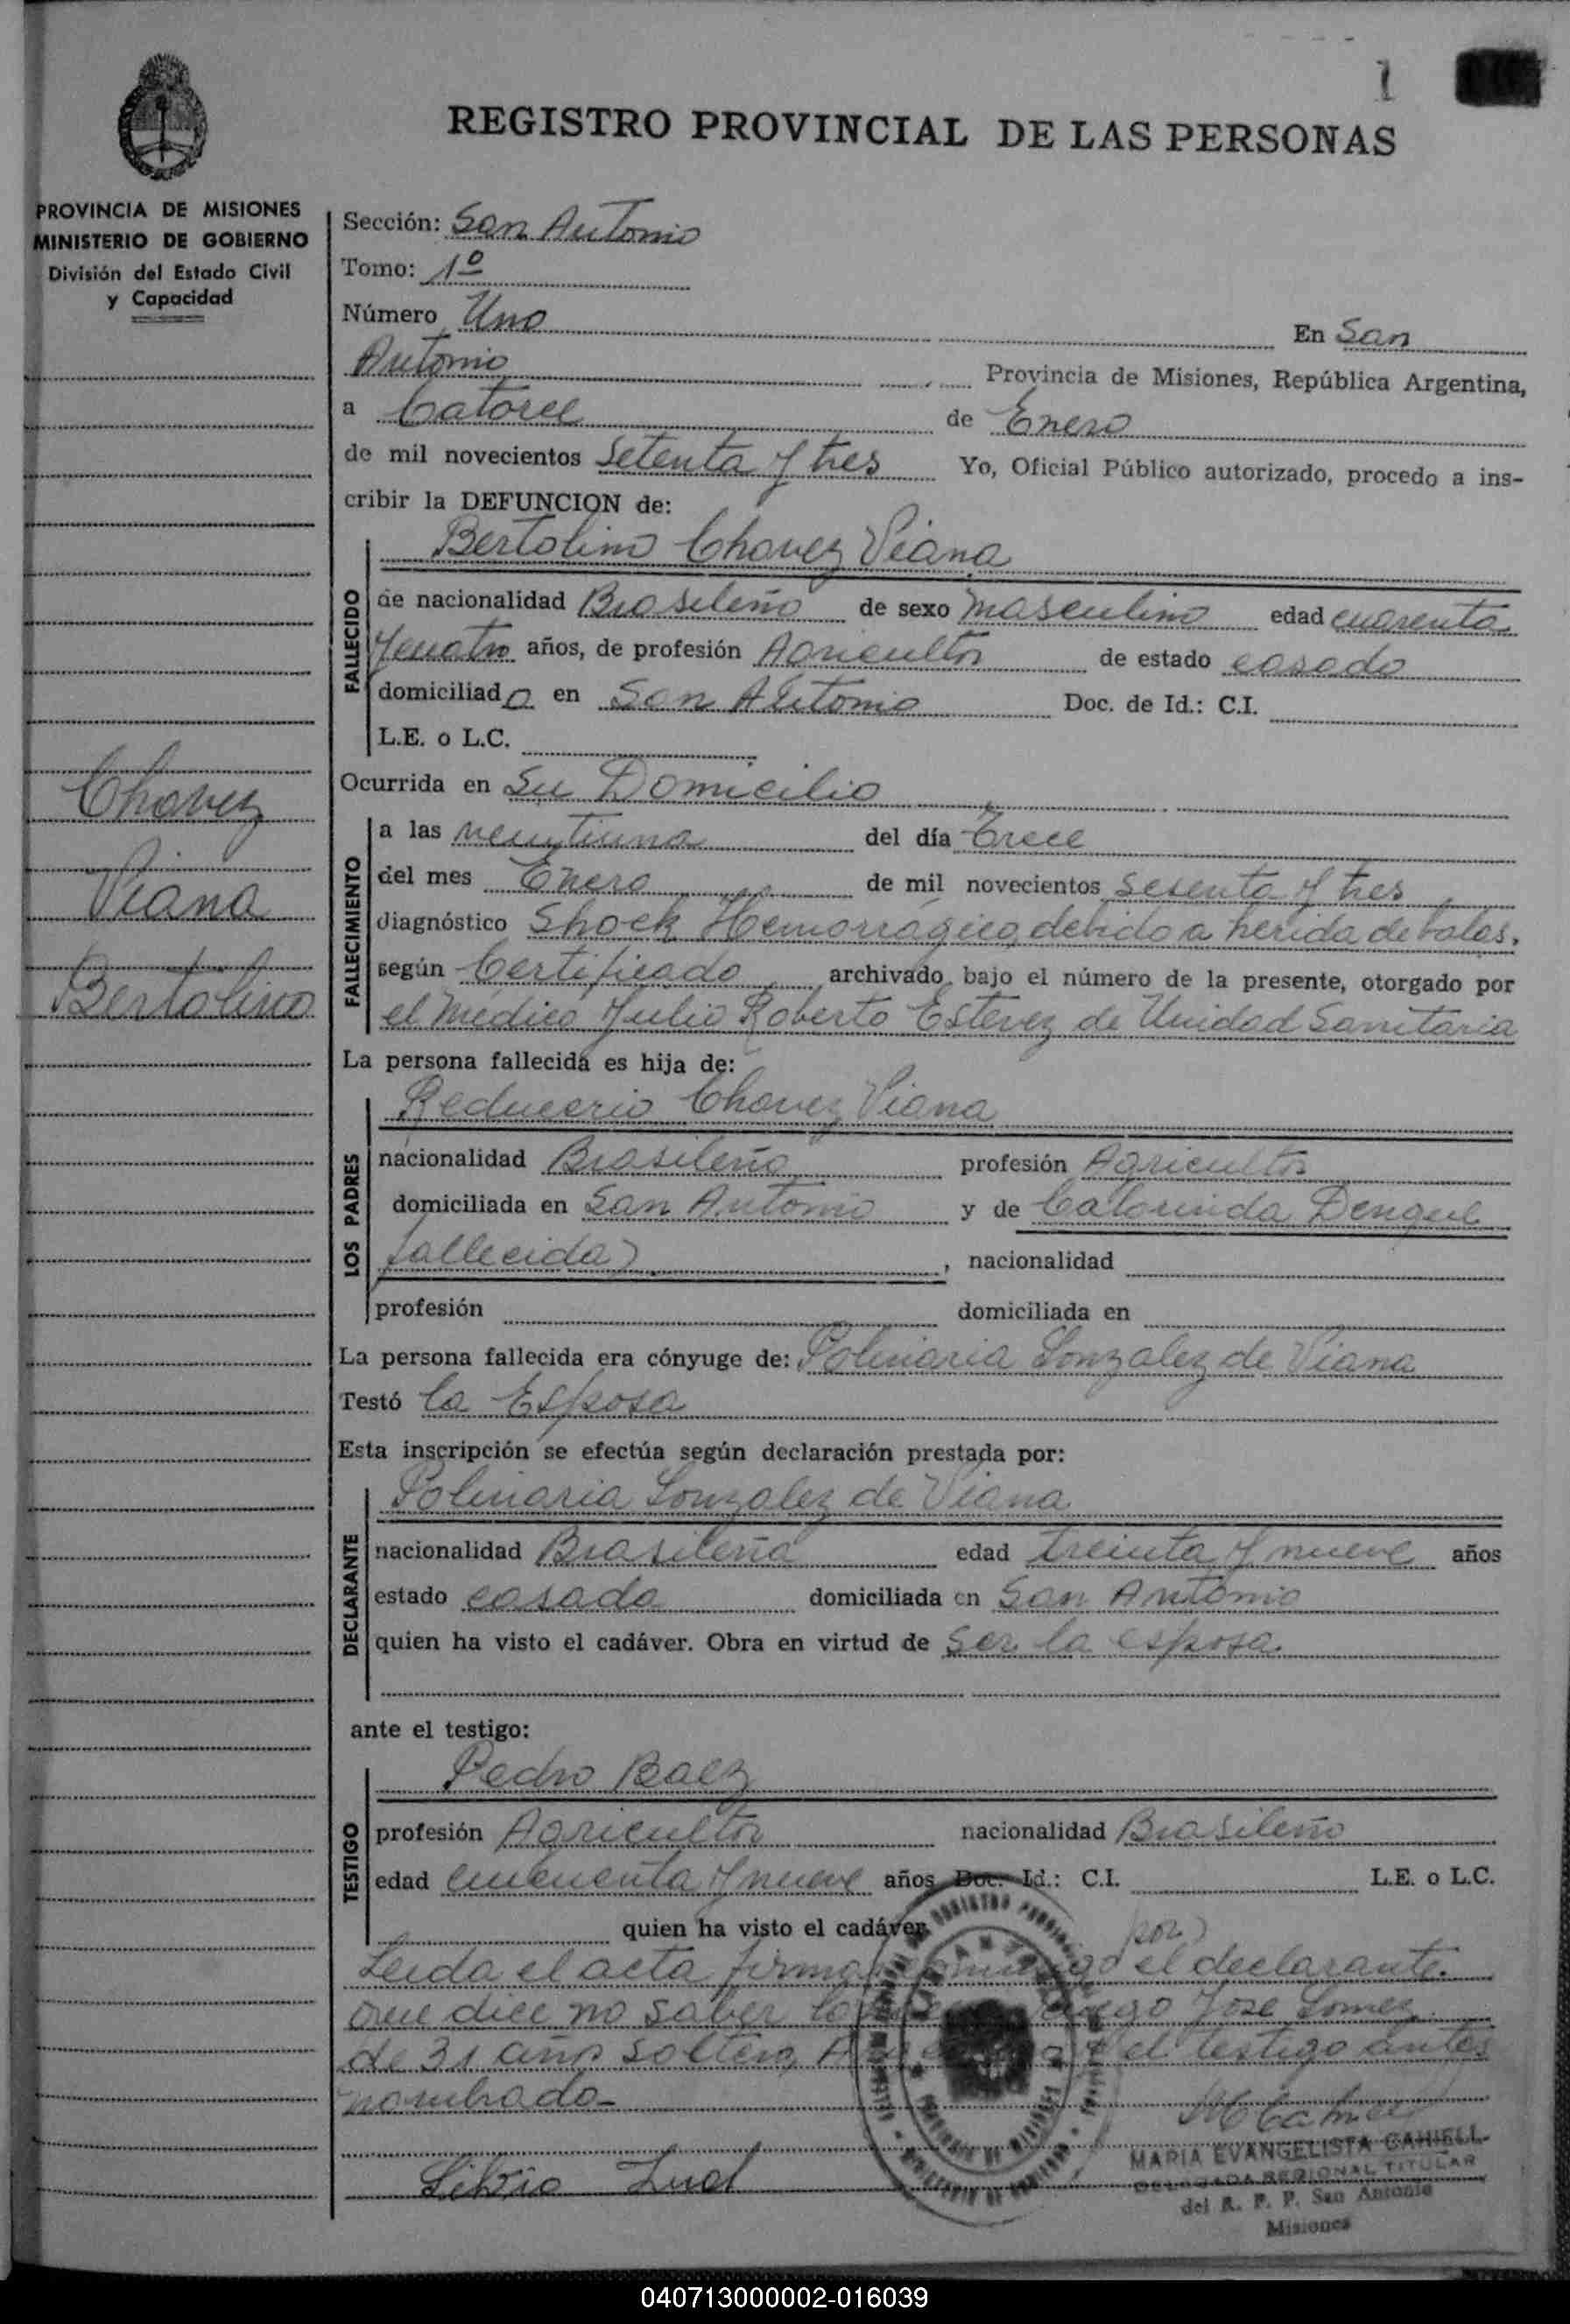 1
REGISTRO PROVINCIAL DE LAS PERSONAS
PROVINCIA DE MISIONES
MINISTERIO DE GOBIERNO
División del Estado Civil
y Capacidad
Chavez
Viana
Bertolino
Sección: San Antonio
Tomo: 1º
Número Uno En San
Antonio Provincia de Misiones, República Argentina,
a Catorce de Enero
de mil novecientos Setenta y tres Yo, Oficial Público autorizado, procedo a ins-
cribir la DEFUNCION de:
Bertolino Chavez Viana
FALLECIDO
de nacionalidad Brasileño de sexo masculino edad cuarenta
y cuatro años, de profesión Agricultor de estado casado
domiciliado en San Antonio Doc. de Id.: C.I.
L.E. o L.C.
Ocurrida en Su Domicilio
FALLECIMIENTO
a las veintiuna del día Trece
del mes Enero de mil novecientos Setenta y tres
diagnóstico Shock Hemorrágico, debido a herida de balas.
según Certificado archivado bajo el número de la presente, otorgado por
el médico Julio Roberto Estevez de Unidad Sanitaria
La persona fallecida es hija de:
Chavez Viana
LOS PADRES
nacionalidad Brasileño profesión Agricultor
domiciliada en San Antonio y de
fallecida) , nacionalidad
profesión domiciliada en
La persona fallecida era cónyuge de: Polinaria Gonzalez de Viana
Testó La Esposa
Esta inscripción se efectúa según declaración prestada por:
Polinaria Gonzalez de Viana
DECLARANTE
nacionalidad Brasileña edad treinta y nueve años
estado casada domiciliada en San Antonio
quien ha visto el cadáver. Obra en virtud de Ser la esposa.
ante el testigo:
Pedro Baez
TESTIGO
profesión Agricultor nacionalidad Brasileño
edad cincuenta y nueve años Doc. Id.: C.I. L.E. o L.C.
quien ha visto el cadáver
por)
Leida el acta firma el declarante.
que dice no saber Jose Gomez
de 31 años soltero, el testigo antes
nombrado-
MARIA EVANGELISTA CAHIELL
DELEGADA REGIONAL TITULAR
del R. P. P. San Antonio
Misiones
040713000002-016039